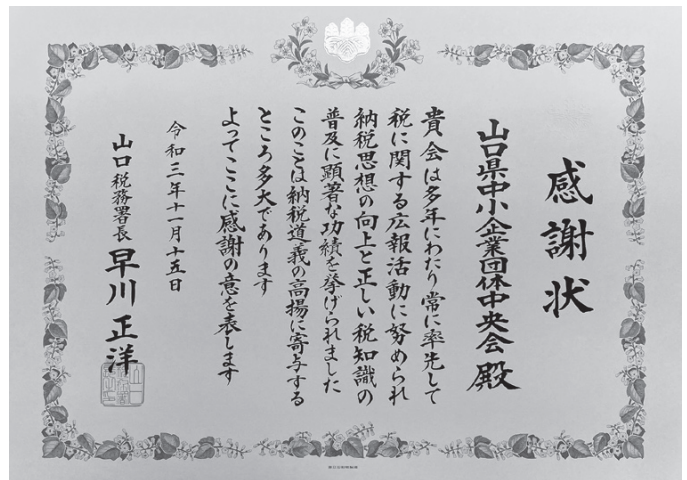 感謝状
山口県中小企業団体中央会 殿
貴会は多年にわたり常に率先して
税に関する広報活動に努められ
納税思想の向上と正しい税知識の
普及に顕著な功績を挙げられました
このことは納税道義の高揚に寄与する
ところ多大であります
よってここに感謝の意を表します
令和三年十一月十五日
山口税務署長 早川正洋